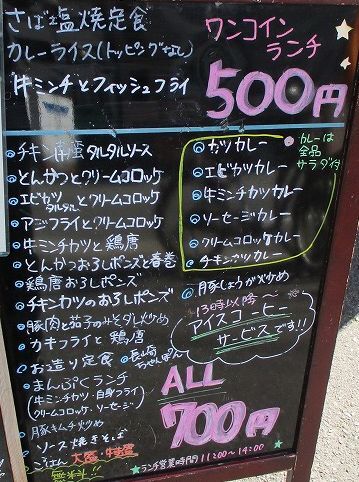 さば塩焼定食
カレーライス(トッピングなし)
牛ミンチとフィッシュフライ
ワンコイン
ランチ
500円
チキン南蛮タルタルソース
とんかつとクリームコロッケ
エビカツ
タルタルとクリームコロッケ
アジフライとクリームコロッケ
牛ミンチカツと鶏唐
とんかつおろしポンズと春巻
鶏唐おろしポンズ
チキンカツのおろしポンズ
豚肉と茄子のみそダレ炒め
カキフライと鶏唐
お造り定食
長崎ちゃんぽん
まんぷくランチ
(牛ミンチカツ・白身フライ)
(クリームコロッケ・ソーセージ)
豚キムチ炒め
ソース焼きそば
ごはん 大盛・特盛
無料!!
カツカレー
エビカツカレー
牛ミンチカツカレー
ソーセージカレー
クリームコロッケカレー
チキンカツカレー
カレーは
全品
サラダ付
豚しょうが炒め
13時以降〜
アイスコーヒー
サービスです!!
ALL
700円
ランチ営業時間 11:00~14:00